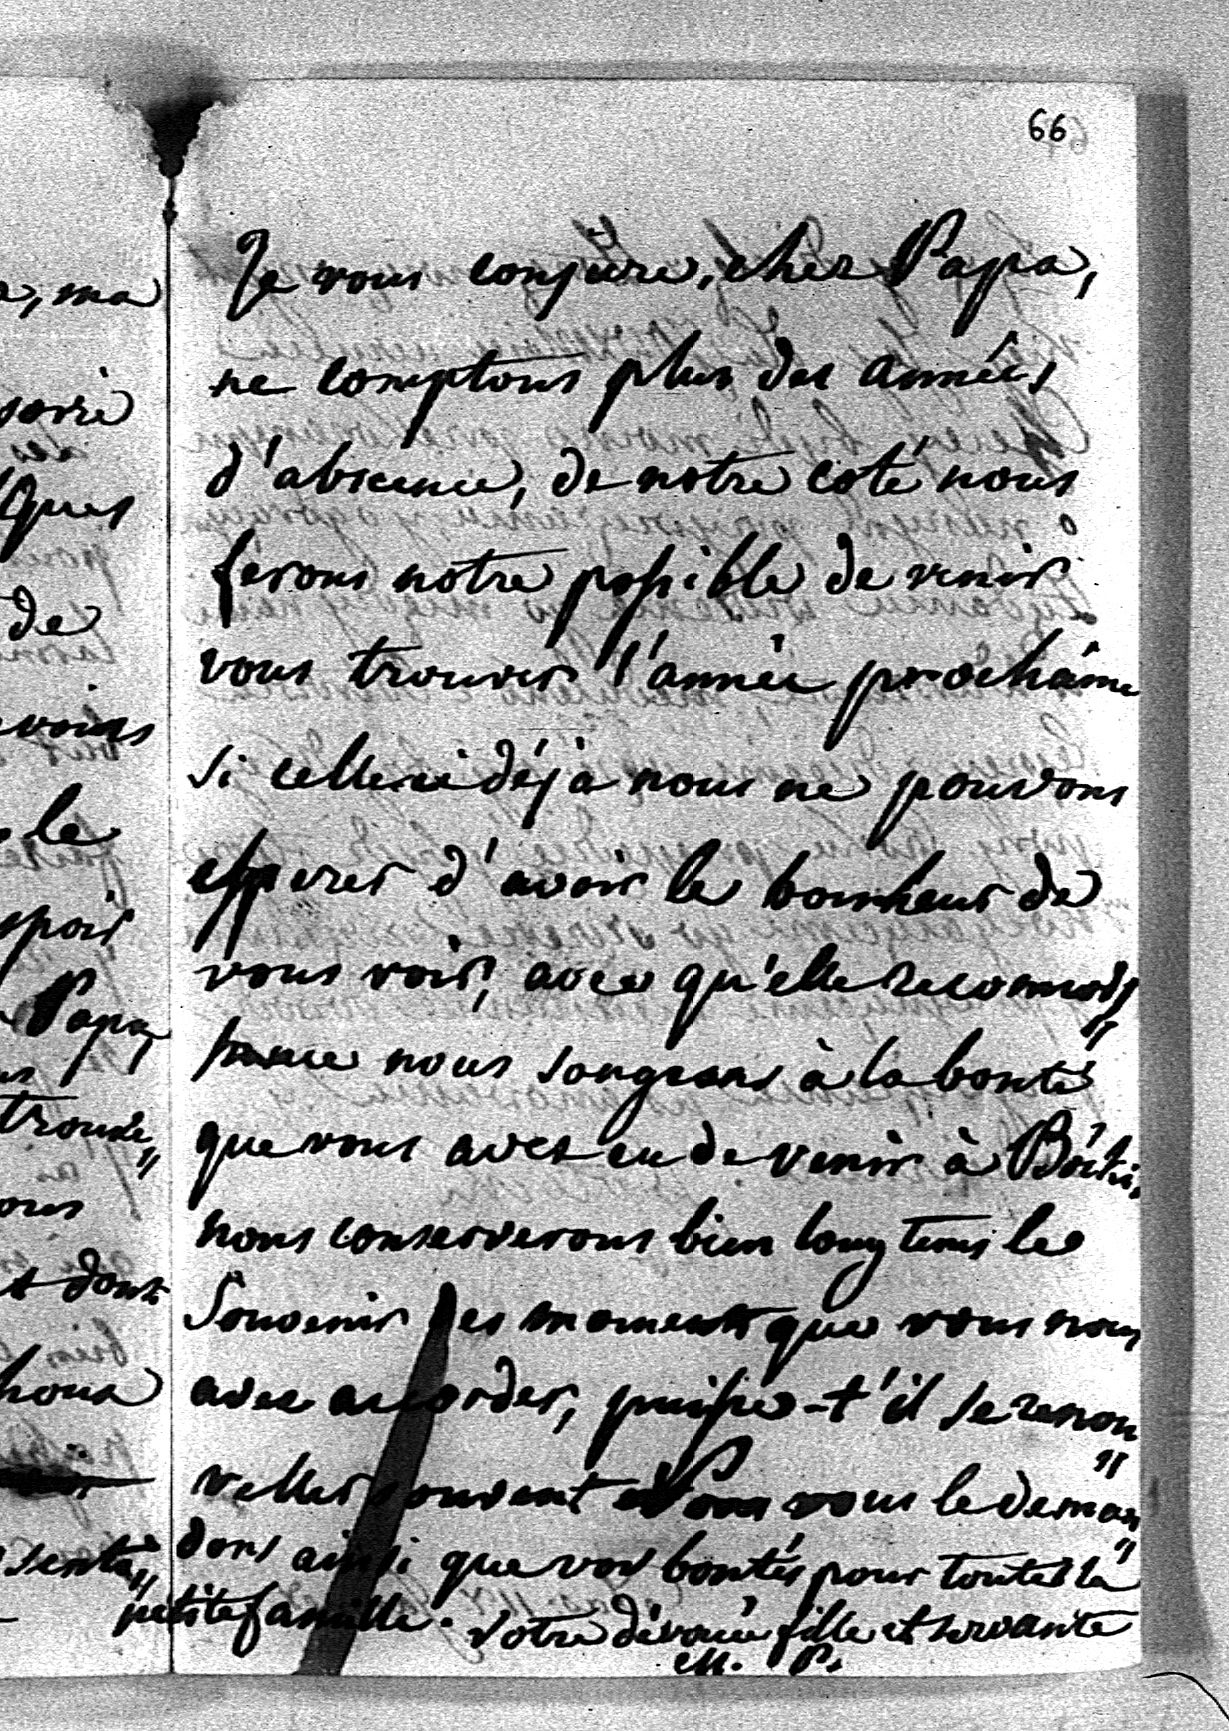 66
Je vous conjure, cher Papa,
ne comptons plus des années
d'absence, de notre coté nous
ferons notre possible de venir
vous trouver l'année prochaine
si celle ci déjà nous ne pouvons
esperer d'avoir le bonheur de
vous voir, avec qu'elle reconnois„
sance nous songeons à la bonté
que vous avez eu de venir à
nous conserverons bien long tems le
Souvenir des moments que vous nous
avez accorder, puisse-t'il se renou„
veller souvent Nous vous le deman„
dons ainsi que vos bontés pour toute la
petite famille. Votre dévouée fille et servante
M. P.
, ma
ques
de
le
Papa,
trouve„
ous
t dont
nous